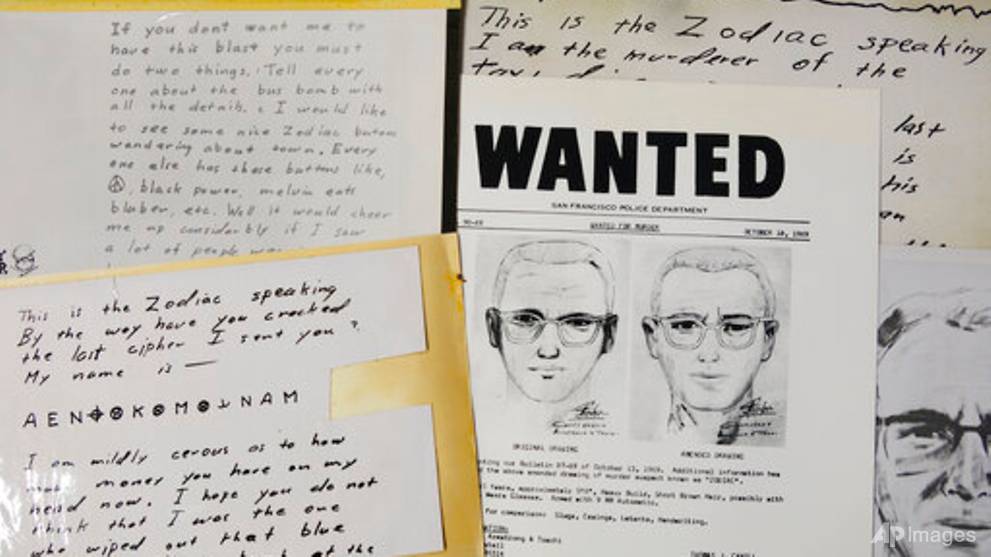 If you dont want me to
have this blast you must
do two things. Tell every
one about the bus bomb with
all the details. I would like
to see some nice Zodiac butons
wandering about town. Every
one else has these buttons like,
black power, melvin eats
bluber, etc. Well it would cheer
me up considerbly if I saw
a lot of people
This is the Zodiac speaking
By the way have you cracked
the last cipher I sent you ?
My name is —
A E N ⌖ ⊗ K ⊗ M ⊗ ⅃ N A M
I am mildly cerous as to how
money you have on my
head now. I hope you do not
think that I was the one
who wiped out that blue
at the
This is the Zodiac speaking
I am the murderer of the
last
is
his
an
WANTED
SAN FRANCISCO POLICE DEPARTMENT
WANTED FOR MURDER
OCTOBER 18, 1969
ORIGINAL DRAWING
AMENDED DRAWING
our Bulletin 87-69 of October 13, 1969. Additional information has
the above amended drawing of murder suspect known as "ZODIAC".
Years, approximately 5'8", Heavy Build, Short Brown Hair, possibly with
Wears Glasses. Armed with 9 MM Automatic.
For comparison: Slugs, Casings, Latents, Handwriting.
Armstrong & Toschi
THOMAS J. CAHILL
AP Images